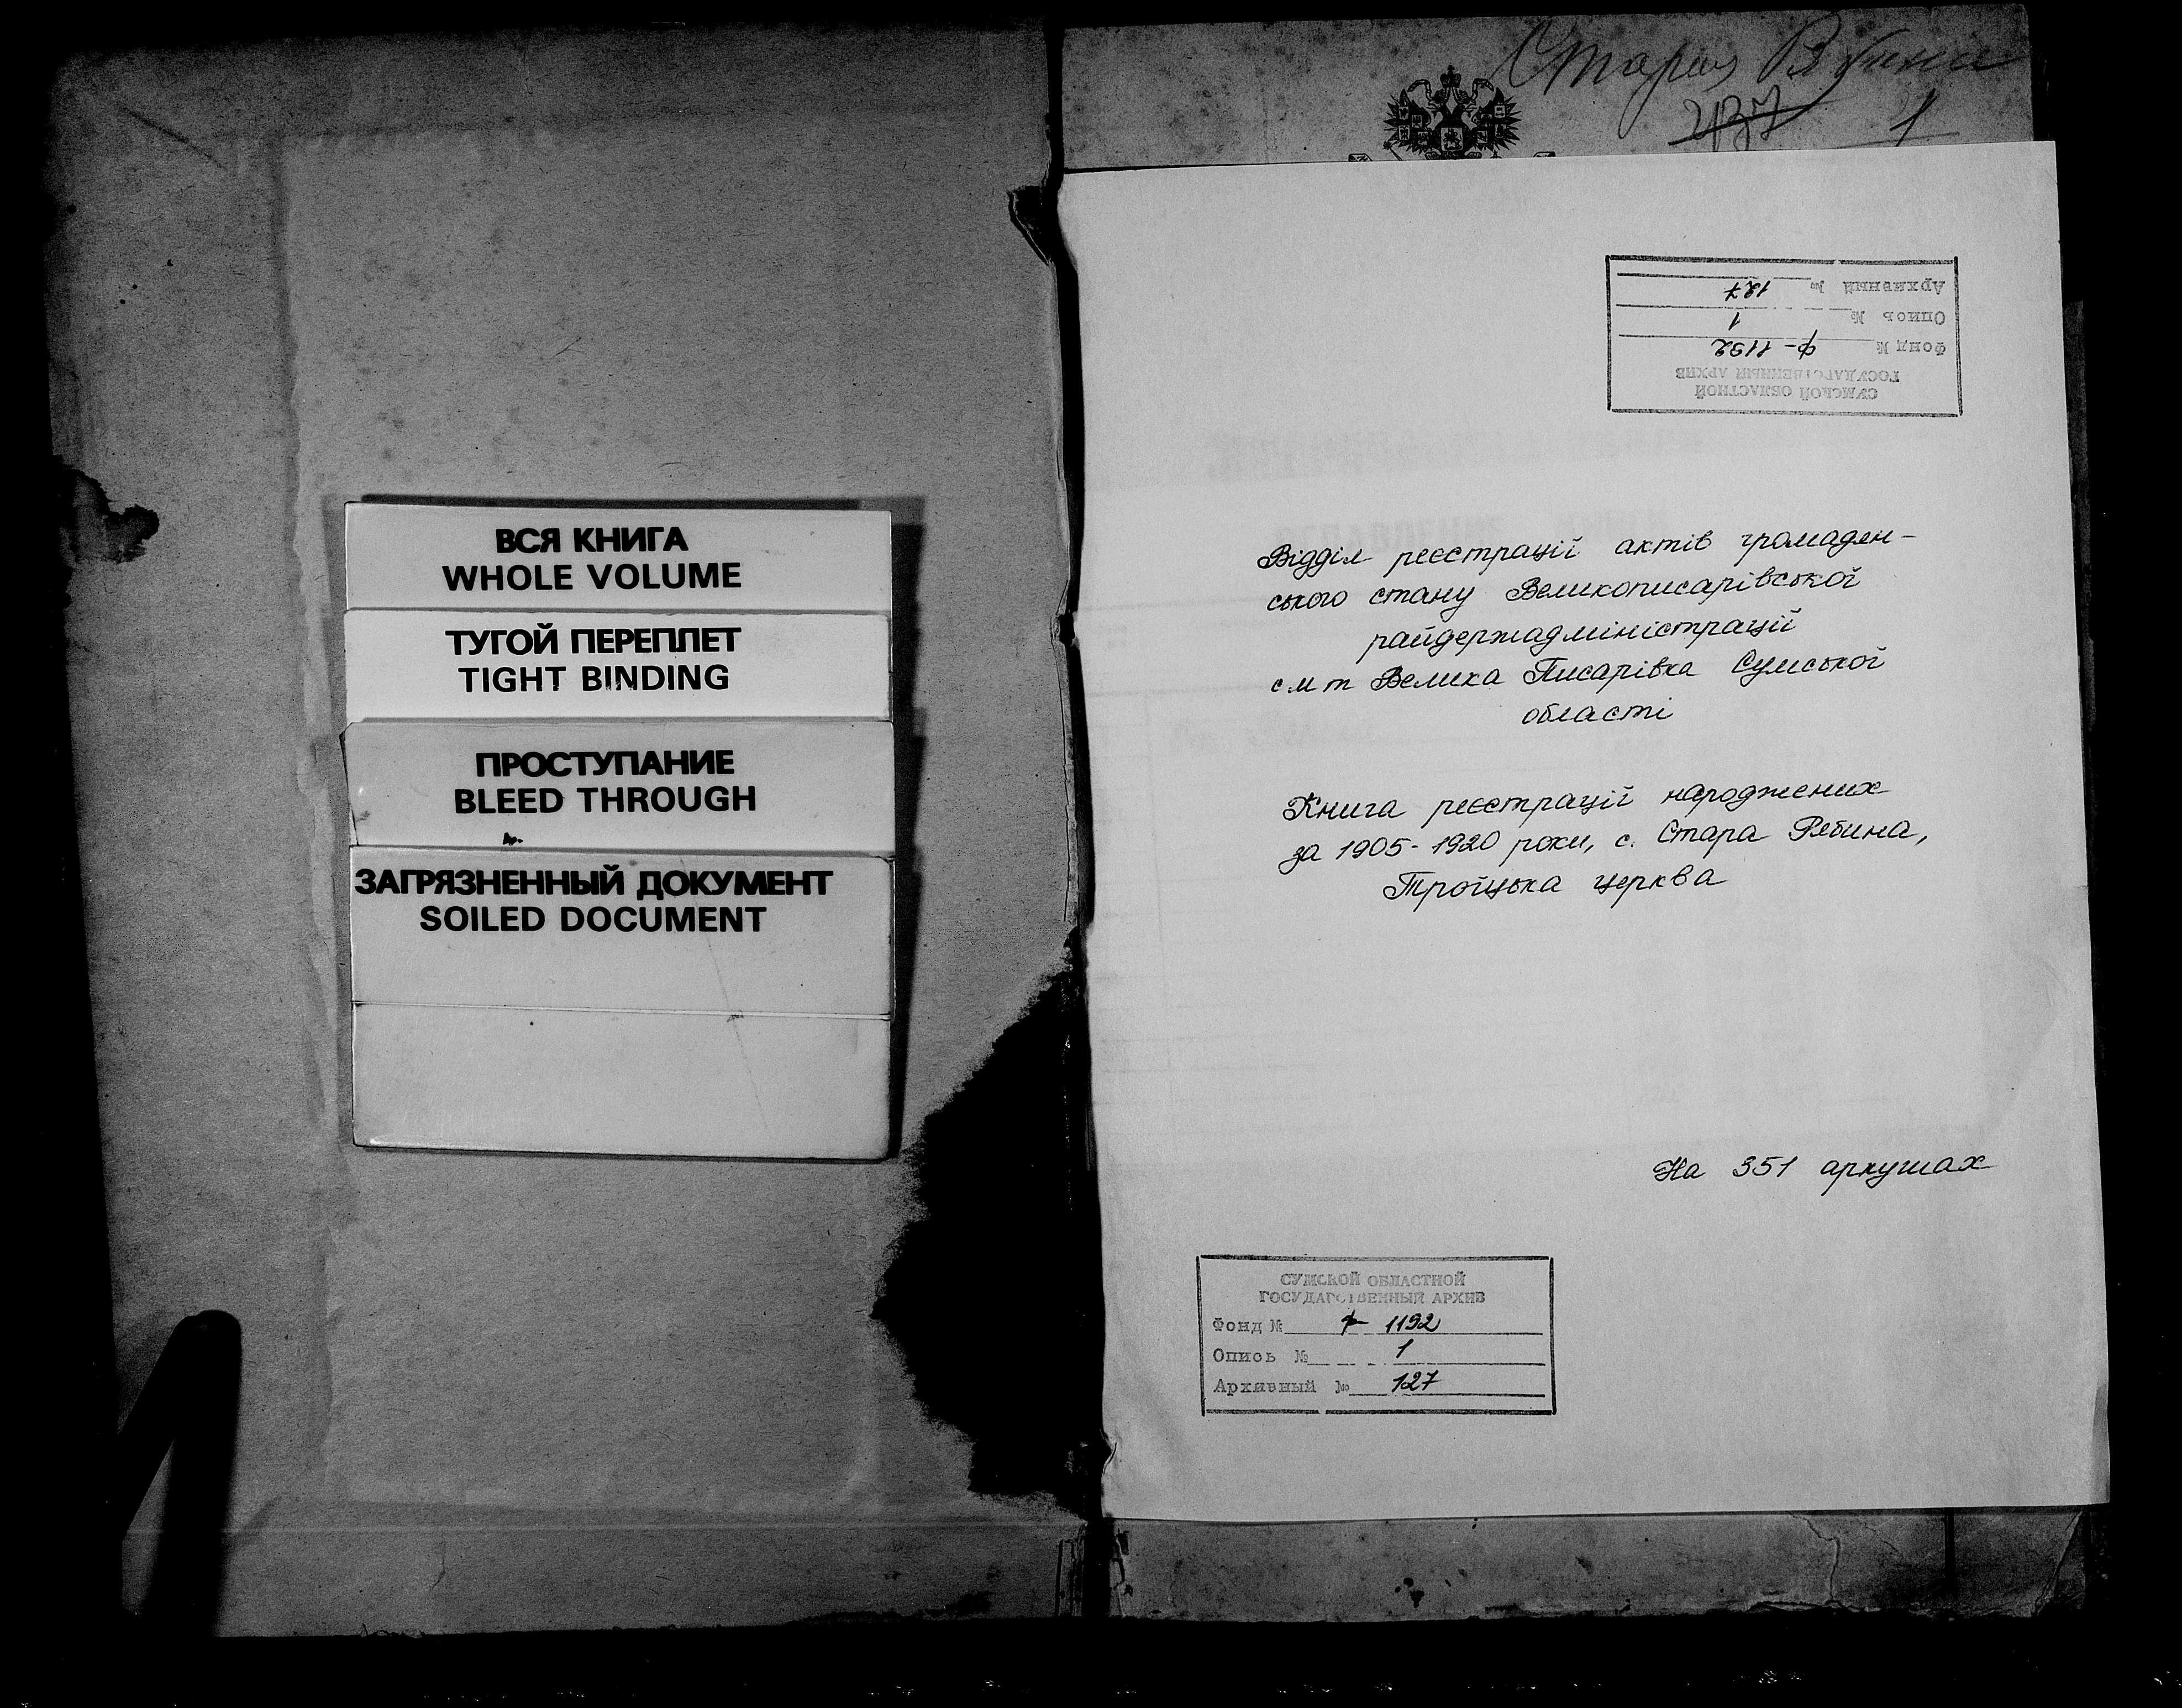 ВСЯ КНИГА
WHOLE VOLUME
ТУГОЙ ПЕРЕПЛЕТ
TIGHT BINDING
ПРОСТУПАНИЕ
BLEED THROUGH
ЗАГРЯЗНЕННЫЙ ДОКУМЕНТ
SOILED DOCUMENT
Старая Рябина
237 1
СУМСКОЙ ОБЛАСТНОЙ
ГОСУДАРСТВЕННЫЙ АРХИВ
Фонд № ф-1192
Опись № 1
Архивный № 127
Відділ реєстрації актів громадян-
ського стану Великописарівської
райдержадміністрації
смт Велика Писарівка Сумської
області
Книга реєстрації народжених
за 1905-1920 роки, с. Стара Рябина,
Троїцька церква
На 351 аркушах
СУМСКОЙ ОБЛАСТНОЙ
ГОСУДАРСТВЕННЫЙ АРХИВ
Фонд № ф-1192
Опись № 1
Архивный № 127